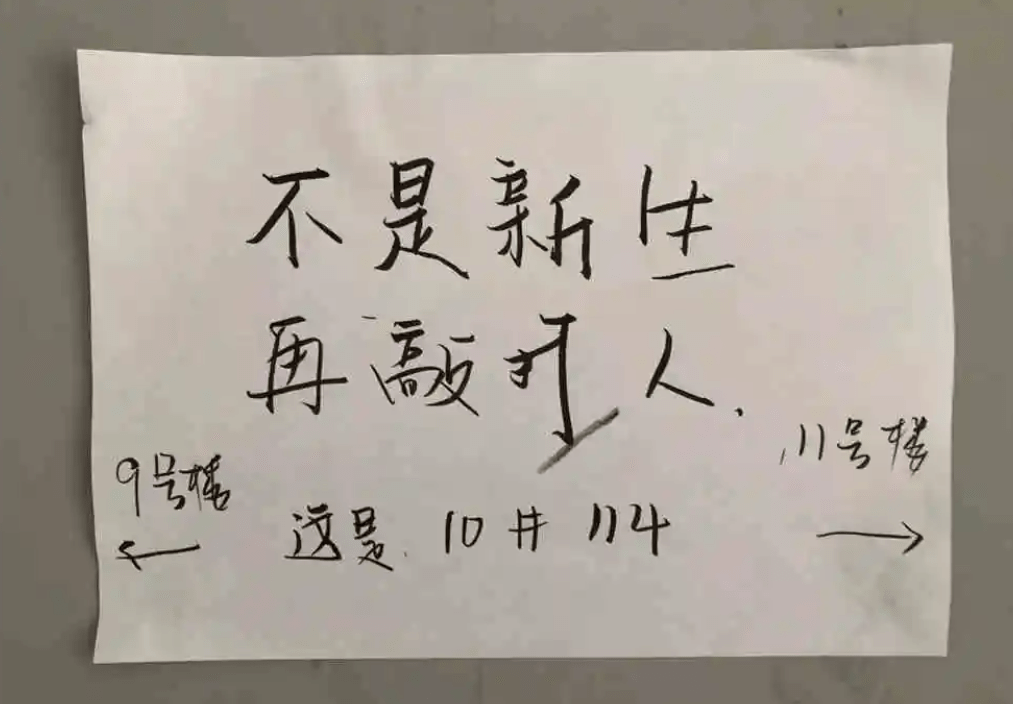 不是新生
再敲打人.
9号楼
11号楼
←
这是. 10# 114
→